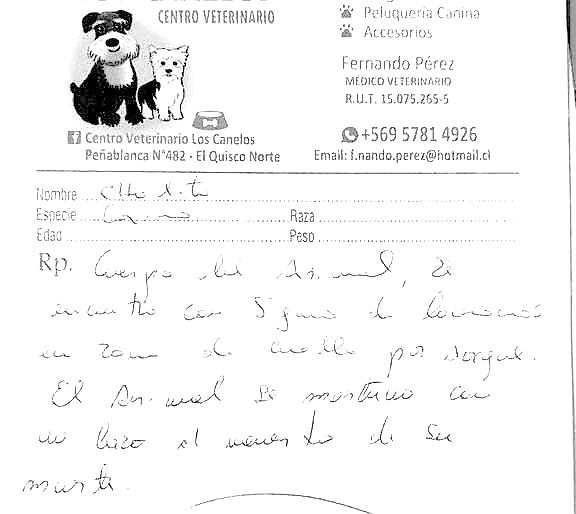 CENTRO VETERINARIO
Peluquería Canina
Accesorios
Fernando Pérez
MÉDICO VETERINARIO
R.U.T. 15.075.265-5
Centro Veterinario Los Canelos
Peñablanca N°482 - El Quisco Norte
+569 5781 4926
Email: f.nando.perez@hotmail.cl
Nombre
Especie
Raza
Edad
Peso
Rp. Cuerpo del Animal, se
encuentro con signo de
en zona de cuello por
El Animal se mantuvo con
un lazo al momento de su
muerte.